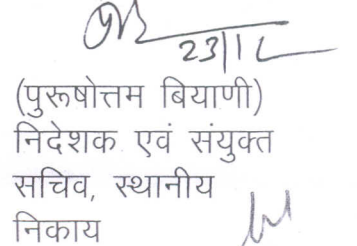 23/12
(पुरूषोत्तम बियाणी)
निदेशक एवं संयुक्त
सचिव, स्थानीय
निकाय